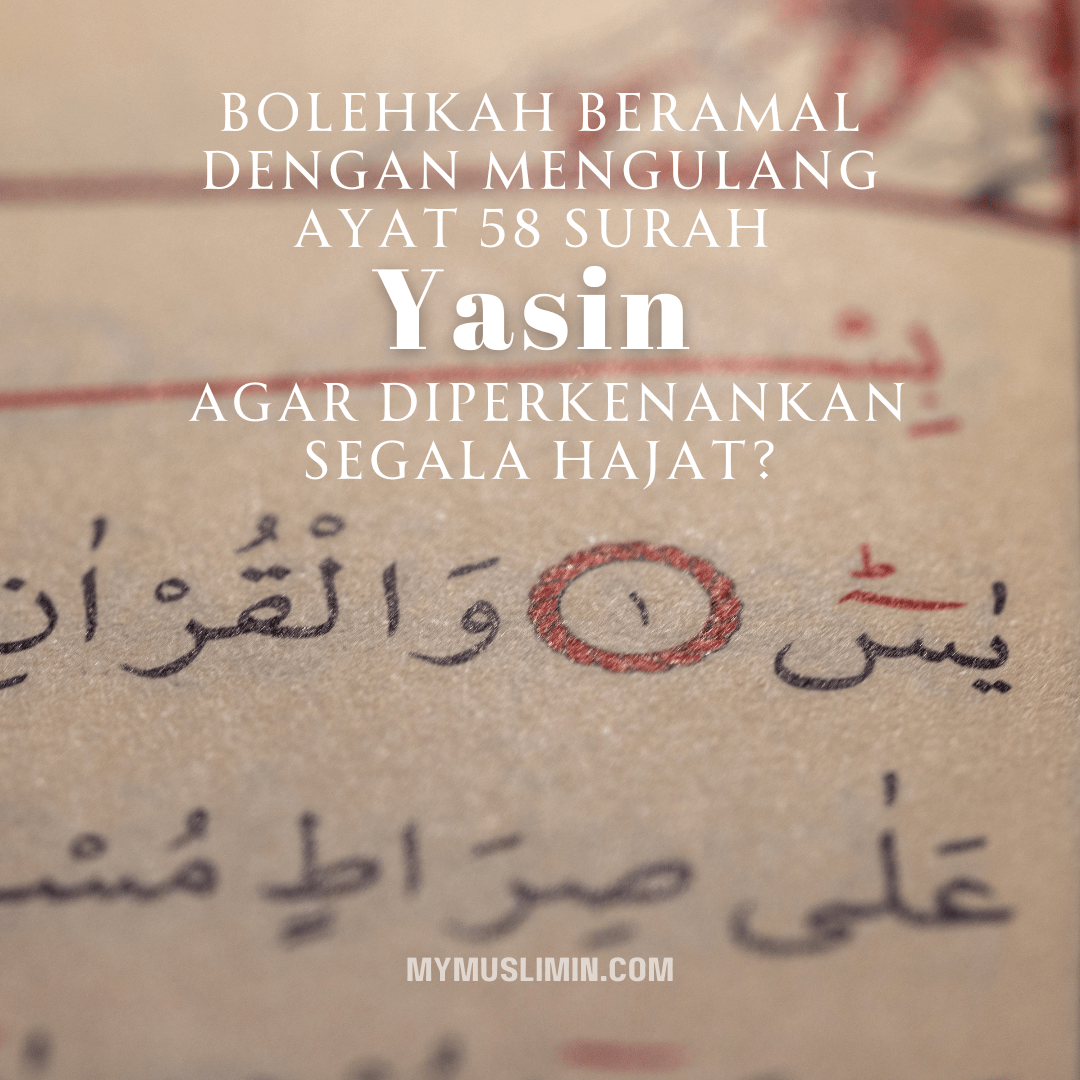 BOLEHKAH BERAMAL
DENGAN MENGULANG
AYAT 58 SURAH
Yasin
AGAR DIPERKENANKAN
SEGALA HAJAT?
يٰسٓ ١ وَالْقُرْاٰنِ
عَلٰى صِرَاطٍ
MYMUSLIMIN.COM